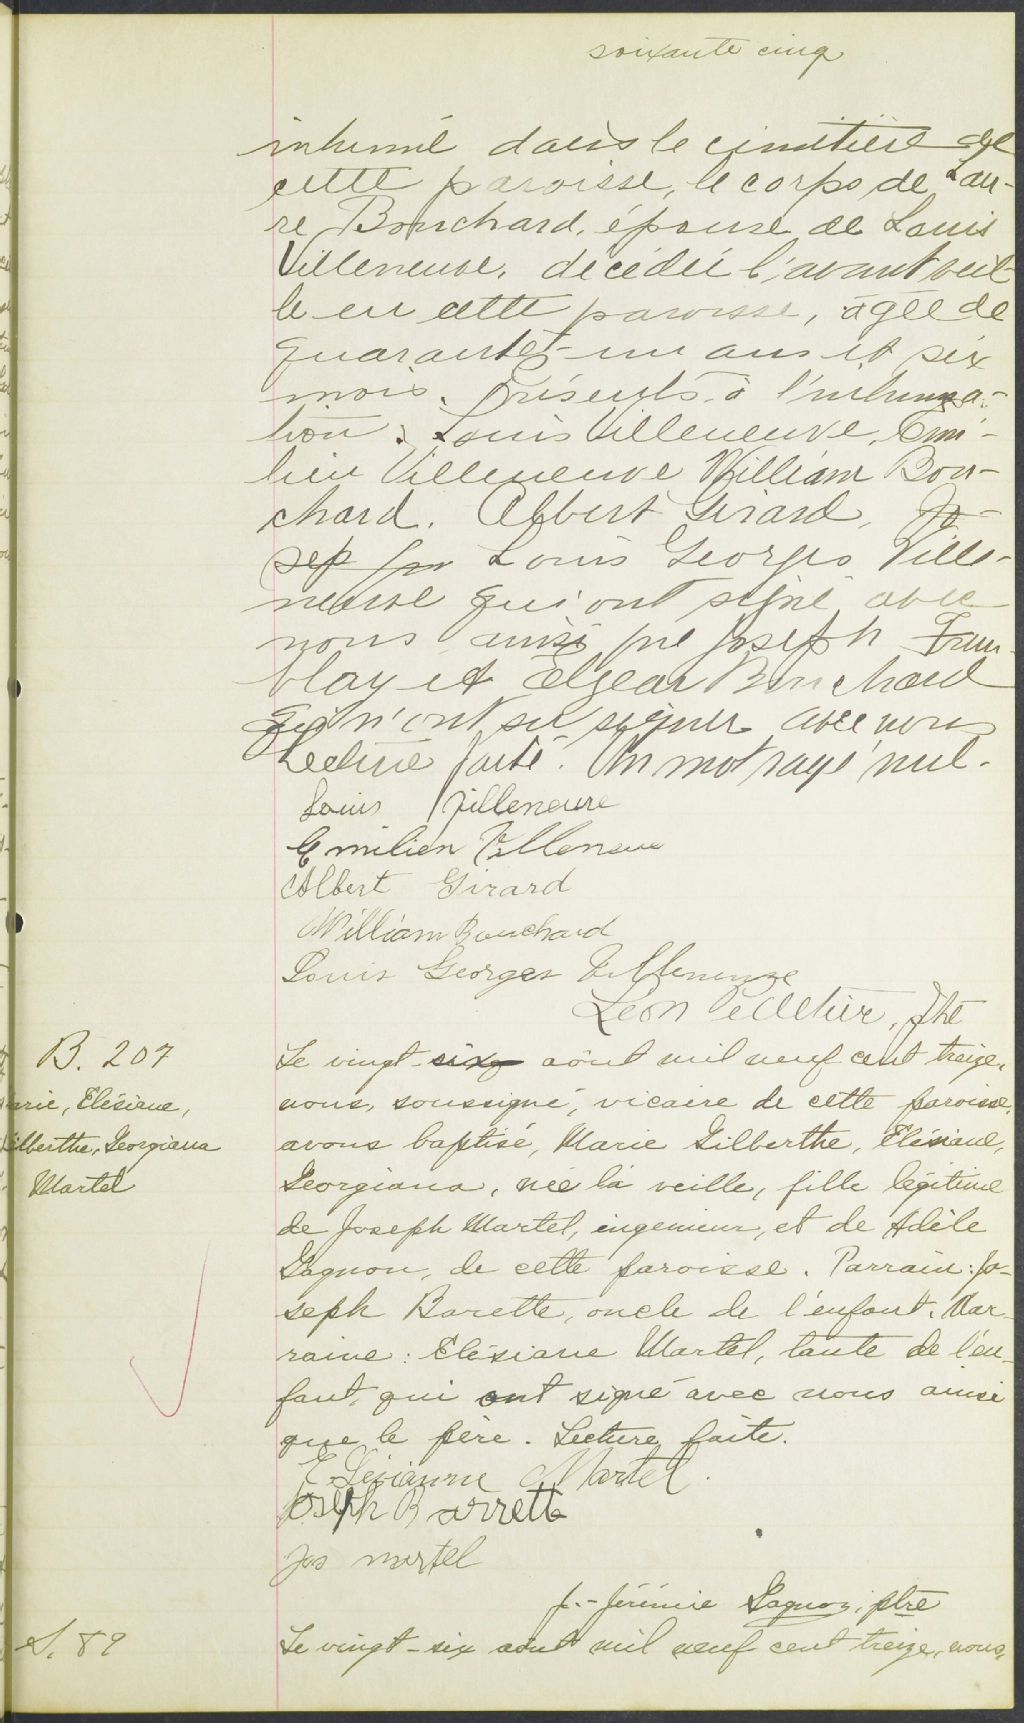 soixante cinq
inhumé dans le cimetière de
cette paroisse, le corps de Lau-
re Bouchard, épouse de Louis
Villeneuve, décédée l'avant veil-
le en cette paroisse, agée de
quarante-un ans et six
mois. Présents à l'inhuma-
tion : Louis Villeneuve, Emi-
lien Villeneuve William Bou-
chard, Albert Girard, Jo-
sep Louis Georges Ville-
neuve qui ont signé avec
nous ainsi que Joseph Trem-
blay et Elzear Bouchard
qui n'ont su signer avec nous
Lecture faite. Un mot rayé nul.
Louis Villeneuve
Emilien Villeneuve
Albert Girard
William Bouchard
Louis Georges Villeneuve
Léon Pelletier, Ptre
B. 207
arie, Elésiane,
ilberthe, Georgiana
Martel
Le vingt-six août mil neuf cent treize,
nous, soussigné, vicaire de cette paroisse,
avons baptisé, Marie Gilberthe, Elésiane,
Georgiana, née la veille, fille légitime
de Joseph Martel, ingenieur, et de Adèle
Gagnon, de cette paroisse. Parrain: Jo-
seph Barette, oncle de l'enfant. Mar-
raine: Elésiane Martel, tante de l'en-
fant, qui ont signé avec nous ainsi
que le père. Lecture faite.
Elésianne Martel.
Joseph Barrette
Jos martel
J.-Jérémie Gagnon, ptre
S. 89
Le vingt-six août mil neuf cent treize, nous,